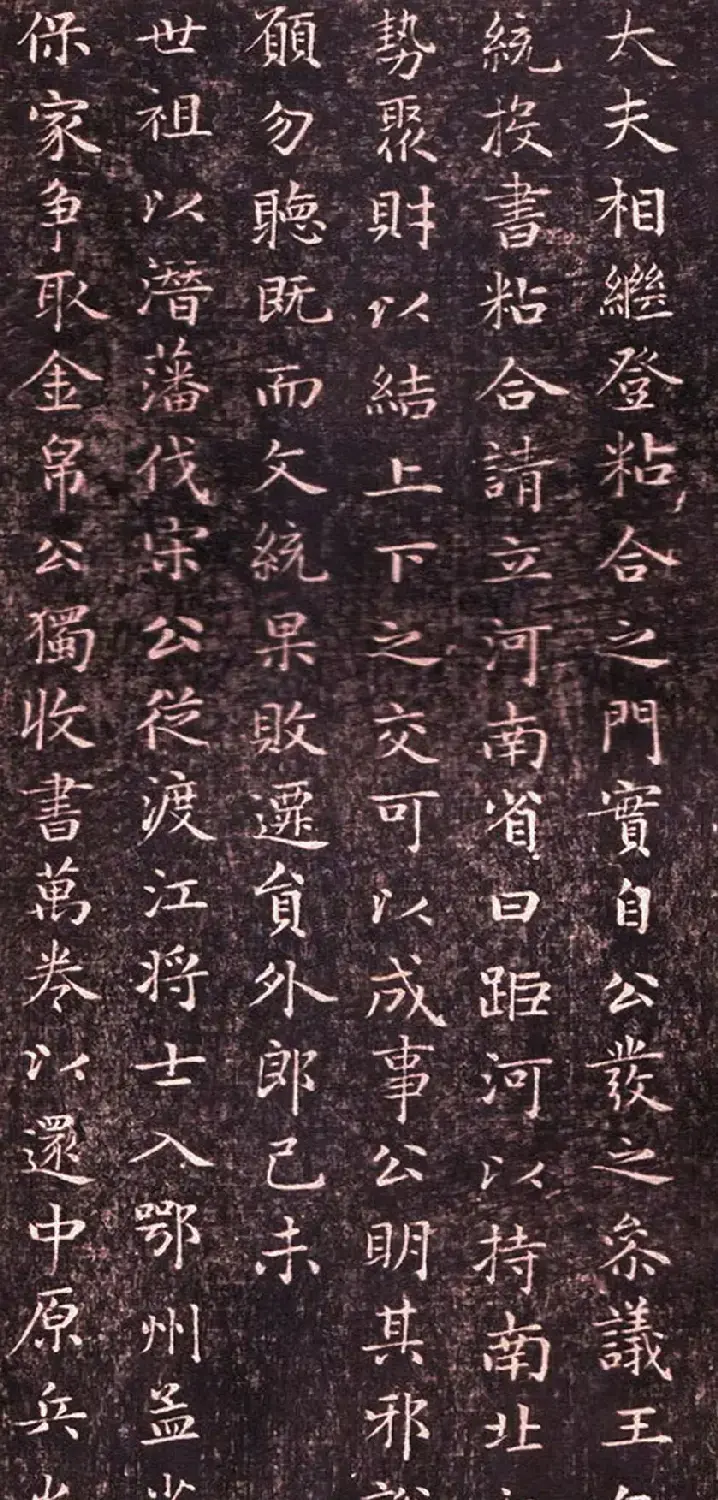 大夫相繼登粘合之門實自公發之叅議王
統投書粘合請立河南省曰距河以持南北
勢聚財以結上下之交可以成事公明其邪
願勿聽既而文統果敗遷貟外郎己未
世祖以潛藩伐宋公從渡江将士入鄂州孟
保家争取金帛公獨收書萬卷以還中原兵